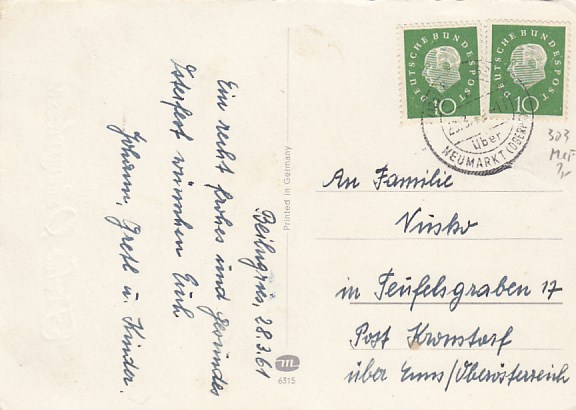 Beilngries, 28.3.61
Ein recht frohes und gesundes
Osterfest wünschen Euch
Johann, Gretl u. Kinder.
Printed in Germany
m
6315
DEUTSCHE BUNDESPOST
10
DEUTSCHE BUNDESPOST
10
über
NEUMARKT (OBERPF
303
An Familie
Vusko
in Teufelsgraben 17
Post Kronstorf
über Enns/Oberösterreich